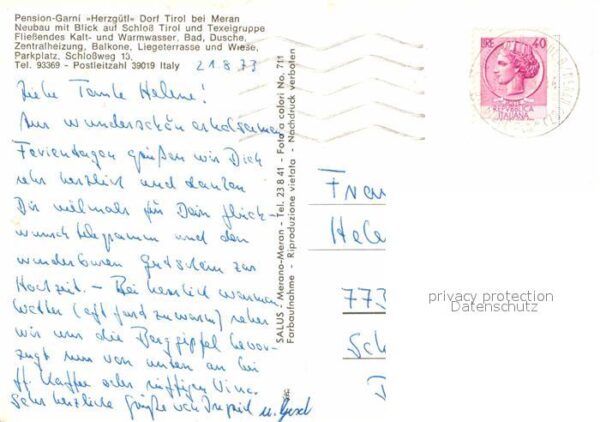 Pension-Garni »Herzgütl« Dorf Tirol bei Meran
Neubau mit Blick auf Schloß Tirol und Texelgruppe
Fließendes Kalt- und Warmwasser, Bad, Dusche,
Zentralheizung, Balkone, Liegeterrasse und Wiese,
Parkplatz, Schloßweg 13,
Tel. 93369 - Postleitzahl 39019 Italy
21.8.73
Liebe Tante Helene!
Aus wunderschön erholsamen
Ferientagen grüßen wir Dich
sehr herzlich und danken
Dir vielmals für Dein Glück-
wunschtelegramm und den
wunderbaren Gutschein zur
Hochzeit. – Bei herrlich warmem
Wetter (oft fast zu warm) sehen
wir uns die Berggipfel bevor-
zugt nun von unten an bei
ff. Kaffee oder süffigem Vino.
Sehr herzliche Grüße von
SALUS - Merano-Meran - Tel. 23841 - Foto a colori No. 711
Farbaufnahme - Riproduzione vietata - Nachdruck verboten
LIRE 40
REPUBBLICA
ITALIANA
Frau
Hele
773
Sch
privacy protection
Datenschutz